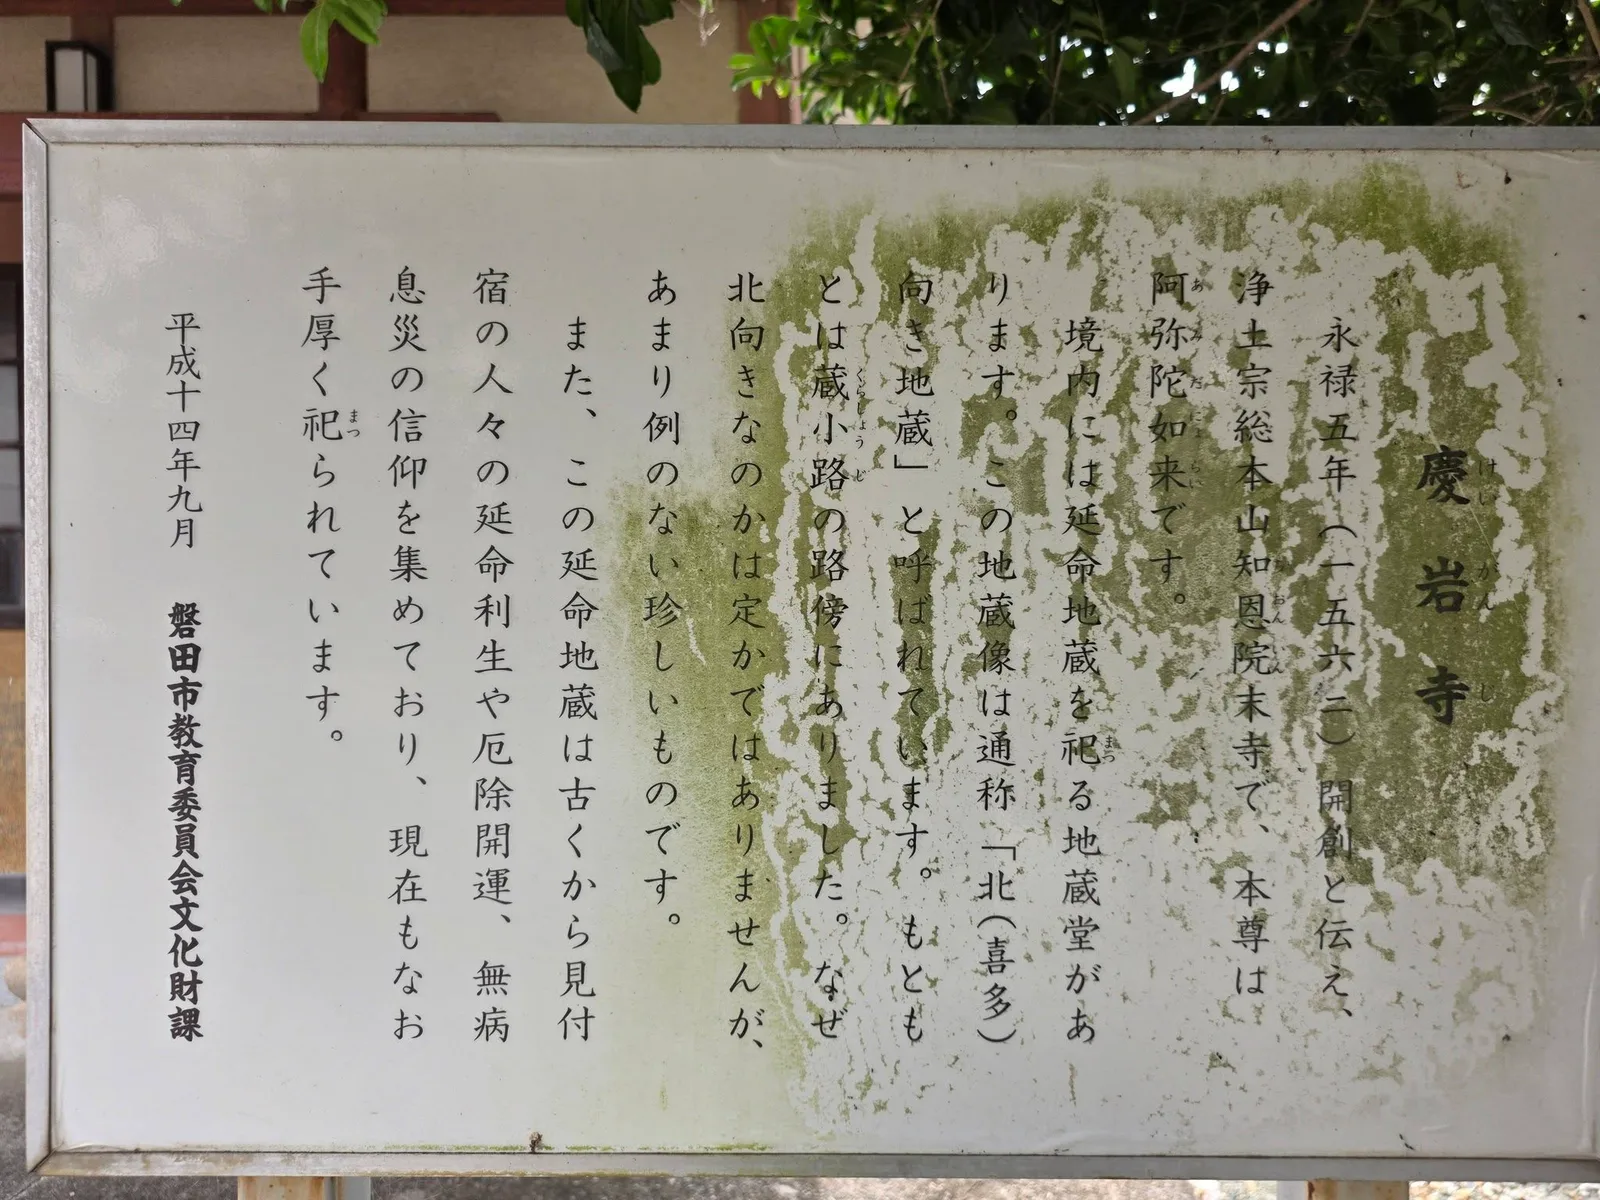 慶岩寺
永禄五年（一五六二）開創と伝え、
浄土宗総本山知恩院末寺で、本尊は
阿弥陀如来です。
境内には延命地蔵を祀る地蔵堂があ
ります。この地蔵像は通称「北（喜多）
向き地蔵」と呼ばれています。もとも
とは蔵小路の路傍にありました。なぜ
北向きなのかは定かではありませんが、
あまり例のない珍しいものです。
また、この延命地蔵は古くから見付
宿の人々の延命利生や厄除開運、無病
息災の信仰を集めており、現在もなお
手厚く祀られています。
平成十四年九月 磐田市教育委員会文化財課